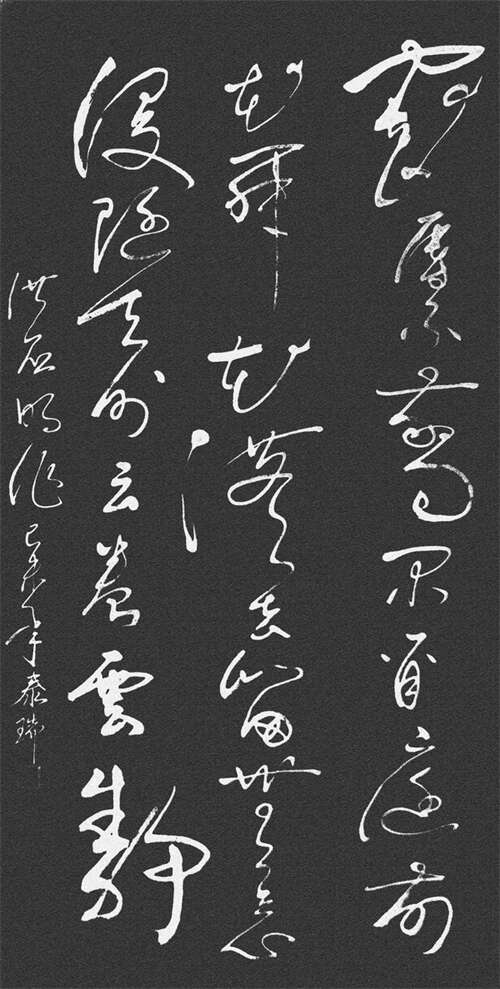 寵辱不驚閑看庭前
花開花落去留無意
漫随天外云卷雲舒
洪应明作 未年泰瑞